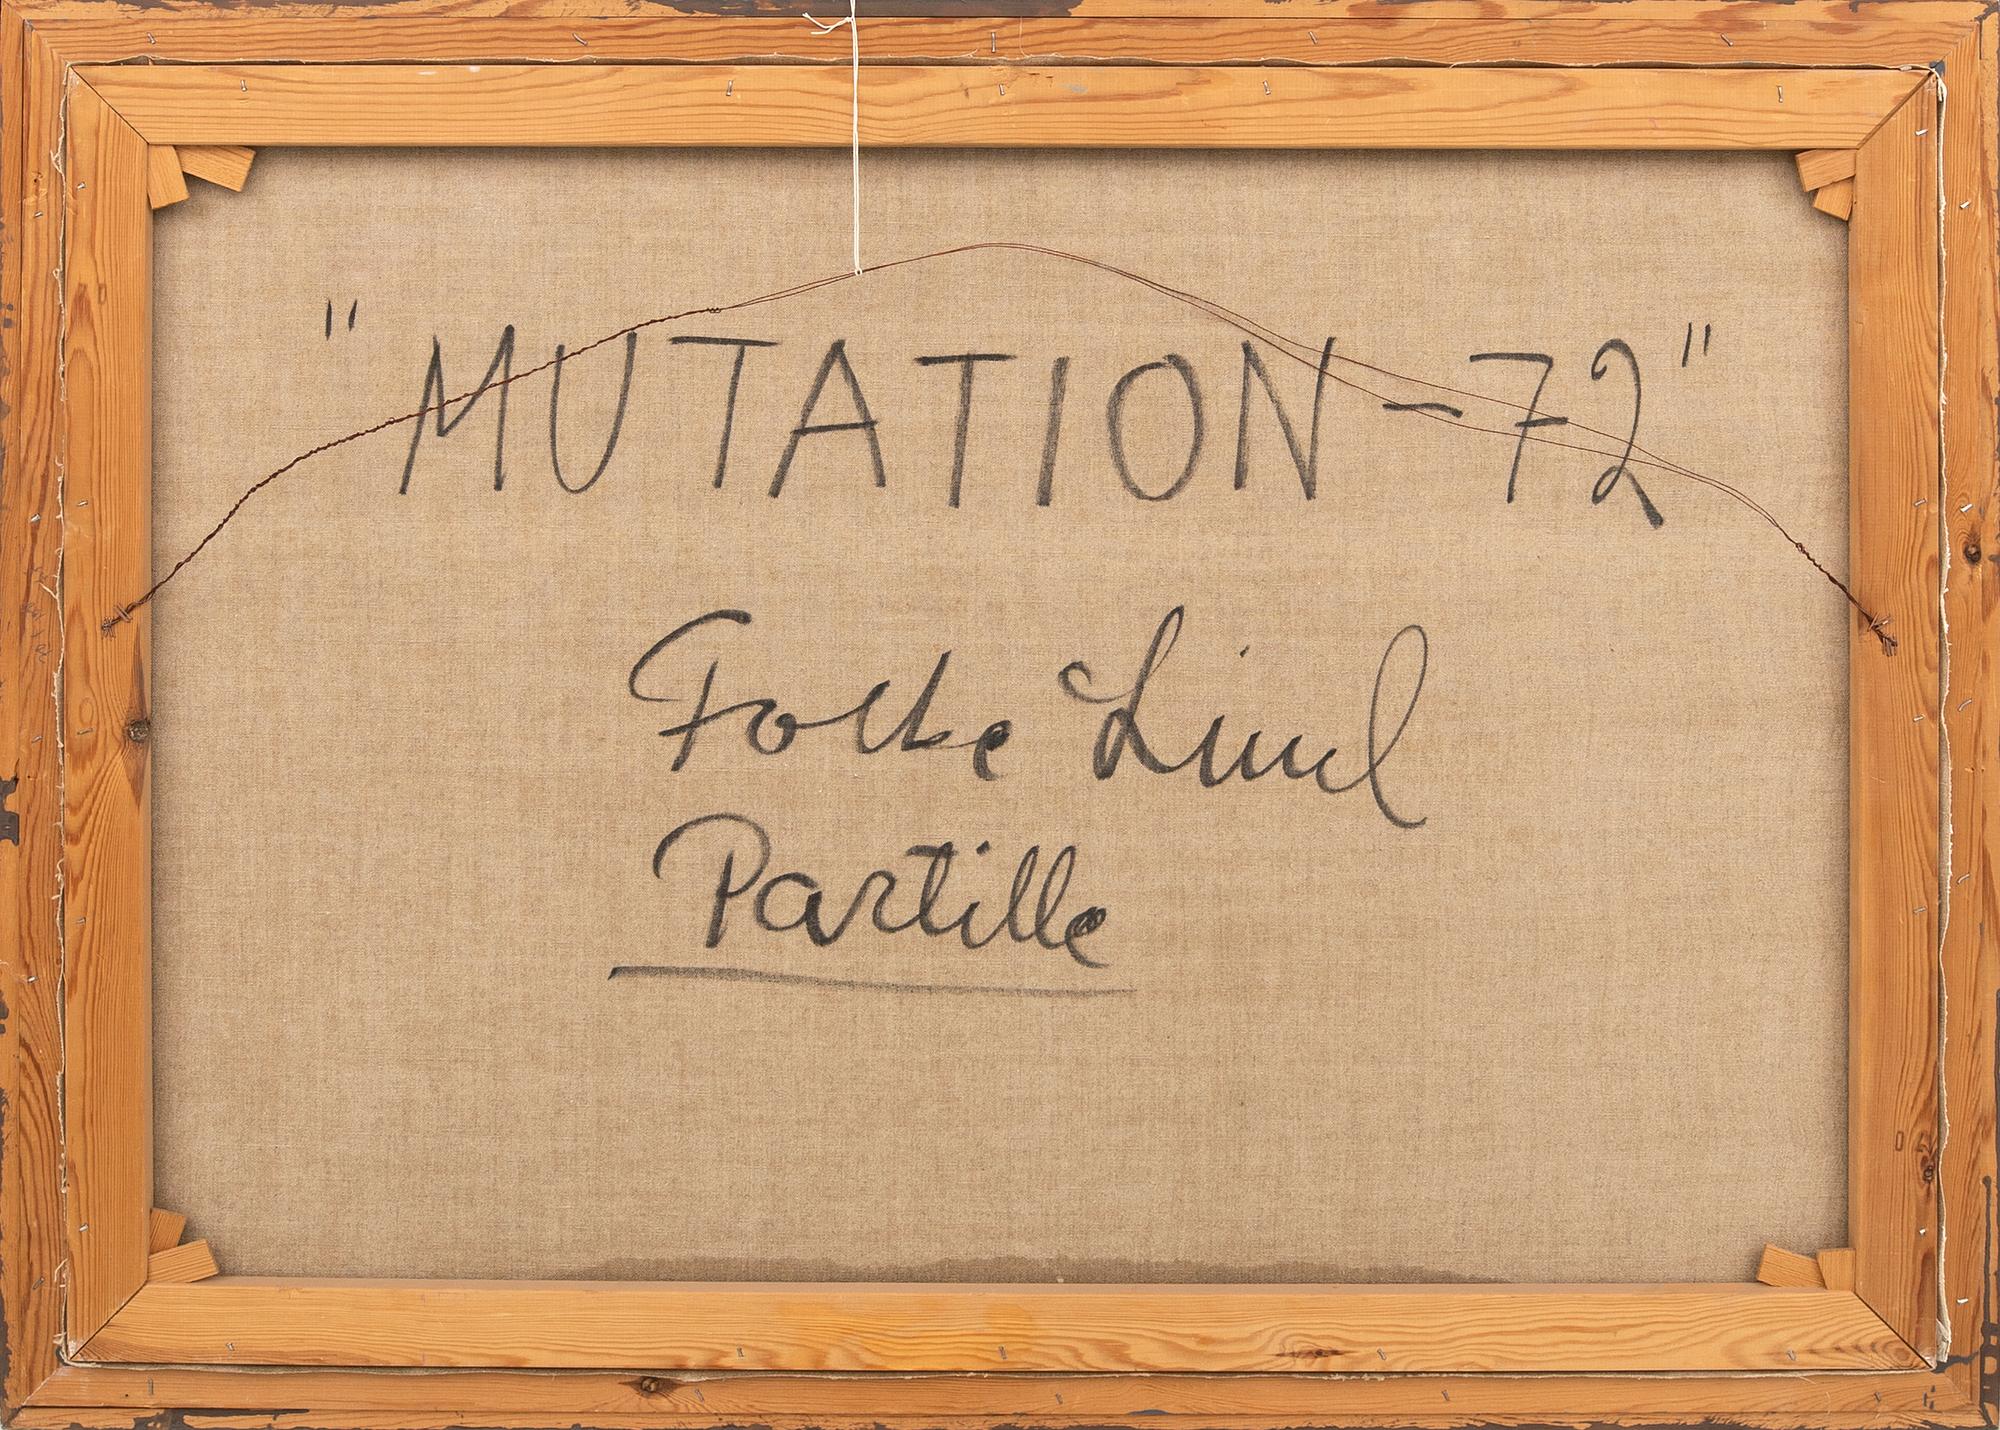 "MUTATION-72"
Folke Lind
Partille